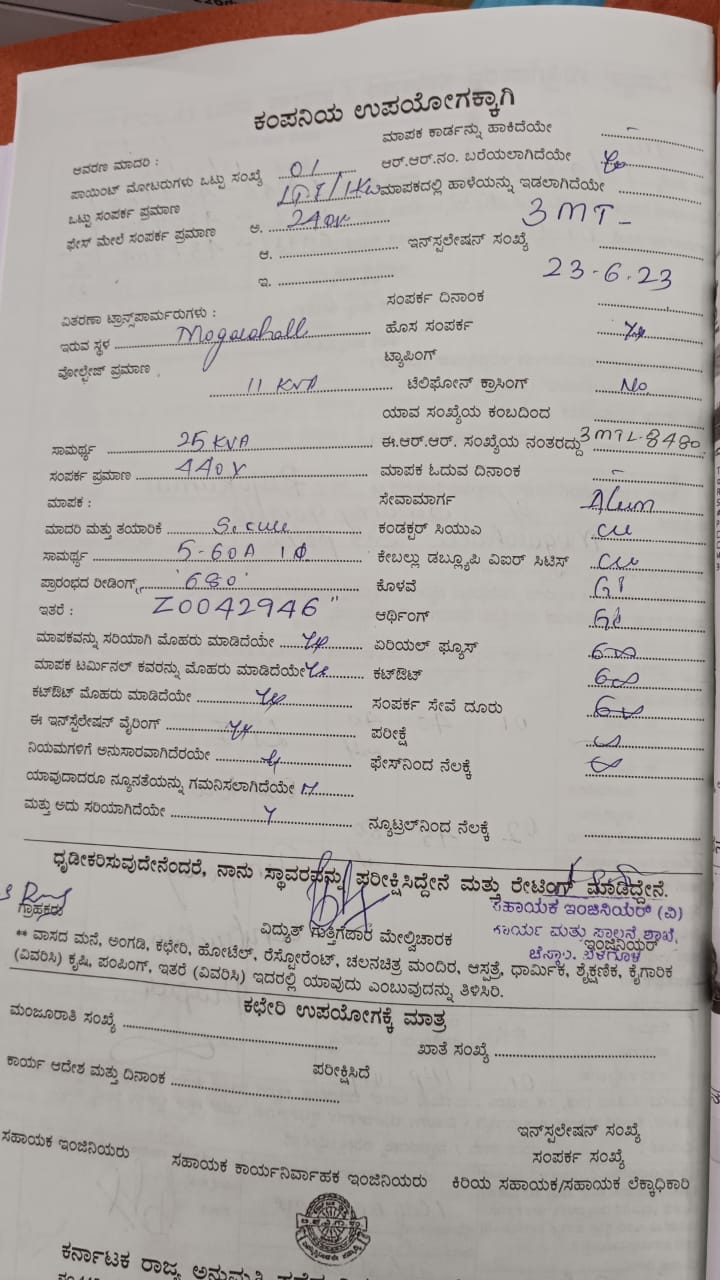 ಕಂಪನಿಯ ಉಪಯೋಗಕ್ಕಾಗಿ
ಮಾಪಕ ಕಾರ್ಡನ್ನು ಹಾಕಿದೆಯೇ -
ಆವರಣ ಮಾದರಿ :
ಆರ್.ಆರ್.ನಂ. ಬರೆಯಲಾಗಿದೆಯೇ
ಪಾಯಿಂಟ್ ಮೋಟರುಗಳು ಒಟ್ಟು ಸಂಖ್ಯೆ 01
ಮಾಪಕದಲ್ಲಿ ಹಾಳೆಯನ್ನು ಇಡಲಾಗಿದೆಯೇ
ಒಟ್ಟು ಸಂಪರ್ಕ ಪ್ರಮಾಣ
3MT-
ಫೇಸ್ ಮೇಲೆ ಸಂಪರ್ಕ ಪ್ರಮಾಣ ಅ. 240v
ಆ. ಇನ್‌ಸ್ಪಲೇಷನ್ ಸಂಖ್ಯೆ
ಇ. 23-6-23
ಸಂಪರ್ಕ ದಿನಾಂಕ
ವಿತರಣಾ ಟ್ರಾನ್ಸ್‌ಪಾರ್ಮರುಗಳು :
ಇರುವ ಸ್ಥಳ ಹೊಸ ಸಂಪರ್ಕ
ವೋಲ್ಟೇಜ್ ಪ್ರಮಾಣ ಟ್ಯಾಪಿಂಗ್
11 KVA ಟೆಲಿಫೋನ್ ಕ್ರಾಸಿಂಗ್ No
ಯಾವ ಸಂಖ್ಯೆಯ ಕಂಬದಿಂದ
ಸಾಮರ್ಥ್ಯ 25 KVA ಈ.ಆರ್.ಆರ್. ಸಂಖ್ಯೆಯ ನಂತರದ್ದು 3MTL-8480
ಸಂಪರ್ಕ ಪ್ರಮಾಣ 440V ಮಾಪಕ ಓದುವ ದಿನಾಂಕ -
ಮಾಪಕ : ಸೇವಾಮಾರ್ಗ Alum
ಮಾದರಿ ಮತ್ತು ತಯಾರಿಕೆ ಕಂಡಕ್ಟರ್ ಸಿಯುಎ cu
ಸಾಮರ್ಥ್ಯ 5-60A 1Φ ಕೇಬಲ್ಲು ಡಬ್ಲ್ಯೂಪಿ ವಿಐರ್ ಸಿಟಿಸ್ cu
ಪ್ರಾರಂಭದ ರೀಡಿಂಗ್ಸ್ '680' ಕೊಳವೆ GI
ಇತರೆ : Z0042946" ಆರ್ಥಿಂಗ್ GI
ಮಾಪಕವನ್ನು ಸರಿಯಾಗಿ ಮೊಹರು ಮಾಡಿದೆಯೇ ಏರಿಯಲ್ ಫ್ಯೂಸ್
ಮಾಪಕ ಟರ್ಮಿನಲ್ ಕವರನ್ನು ಮೊಹರು ಮಾಡಿದೆಯೇ ಕಟ್‌ಔಟ್
ಕಟ್‌ಔಟ್ ಮೊಹರು ಮಾಡಿದೆಯೇ ಸಂಪರ್ಕ ಸೇವೆ ದೂರು
ಈ ಇನ್‌ಸ್ಪಲೇಷನ್ ವೈರಿಂಗ್ ಪರೀಕ್ಷೆ
ನಿಯಮಗಳಿಗೆ ಅನುಸಾರವಾಗಿದೆರಯೇ ಫೇಸ್‌ನಿಂದ ನೆಲಕ್ಕೆ
ಯಾವುದಾದರೂ ನ್ಯೂನತೆಯನ್ನು ಗಮನಿಸಲಾಗಿದೆಯೇ
ಮತ್ತು ಅದು ಸರಿಯಾಗಿದೆಯೇ ನ್ಯೂಟ್ರಲ್‌ನಿಂದ ನೆಲಕ್ಕೆ
ಧೃಡೀಕರಿಸುವುದೇನೆಂದರೆ, ನಾನು ಸ್ಥಾವರವನ್ನು ಪರೀಕ್ಷಿಸಿದ್ದೇನೆ ಮತ್ತು ರೇಟಿಂಗ್ ಮಾಡಿದ್ದೇನೆ.
ಗ್ರಾಹಕರು
ಸಹಾಯಕ ಇಂಜಿನಿಯರ್ (ವಿ)
ವಿದ್ಯುತ್ ಗುತ್ತಿಗೆದಾರ ಮೇಲ್ವಿಚಾರಕ
ಕಾರ್ಯ ಮತ್ತು ಪಾಲನೆ ಶಾಖೆ,
ಇಂಜಿನಿಯರ್
** ವಾಸದ ಮನೆ, ಅಂಗಡಿ, ಕಛೇರಿ, ಹೋಟೆಲ್, ರೆಸ್ಟೋರೆಂಟ್, ಚಲನಚಿತ್ರ ಮಂದಿರ, ಆಸ್ಪತ್ರೆ, ಧಾರ್ಮಿಕ, ಶೈಕ್ಷಣಿಕ, ಕೈಗಾರಿಕ
(ವಿವರಿಸಿ) ಕೃಷಿ, ಪಂಪಿಂಗ್, ಇತರೆ (ವಿವರಿಸಿ) ಇದರಲ್ಲಿ ಯಾವುದು ಎಂಬುವುದನ್ನು ತಿಳಿಸಿರಿ.
ಕಛೇರಿ ಉಪಯೋಗಕ್ಕೆ ಮಾತ್ರ
ಮಂಜೂರಾತಿ ಸಂಖ್ಯೆ ಖಾತೆ ಸಂಖ್ಯೆ
ಕಾರ್ಯ ಆದೇಶ ಮತ್ತು ದಿನಾಂಕ ಪರೀಕ್ಷಿಸಿದೆ
ಇನ್‌ಸ್ಪಲೇಷನ್ ಸಂಖ್ಯೆ
ಸಂಪರ್ಕ ಸಂಖ್ಯೆ
ಸಹಾಯಕ ಇಂಜಿನಿಯರು ಸಹಾಯಕ ಕಾರ್ಯನಿರ್ವಾಹಕ ಇಂಜಿನಿಯರು ಕಿರಿಯ ಸಹಾಯಕ/ಸಹಾಯಕ ಲೆಕ್ಕಾಧಿಕಾರಿ
ಕರ್ನಾಟಕ ರಾಜ್ಯ ಅನುಮತಿ